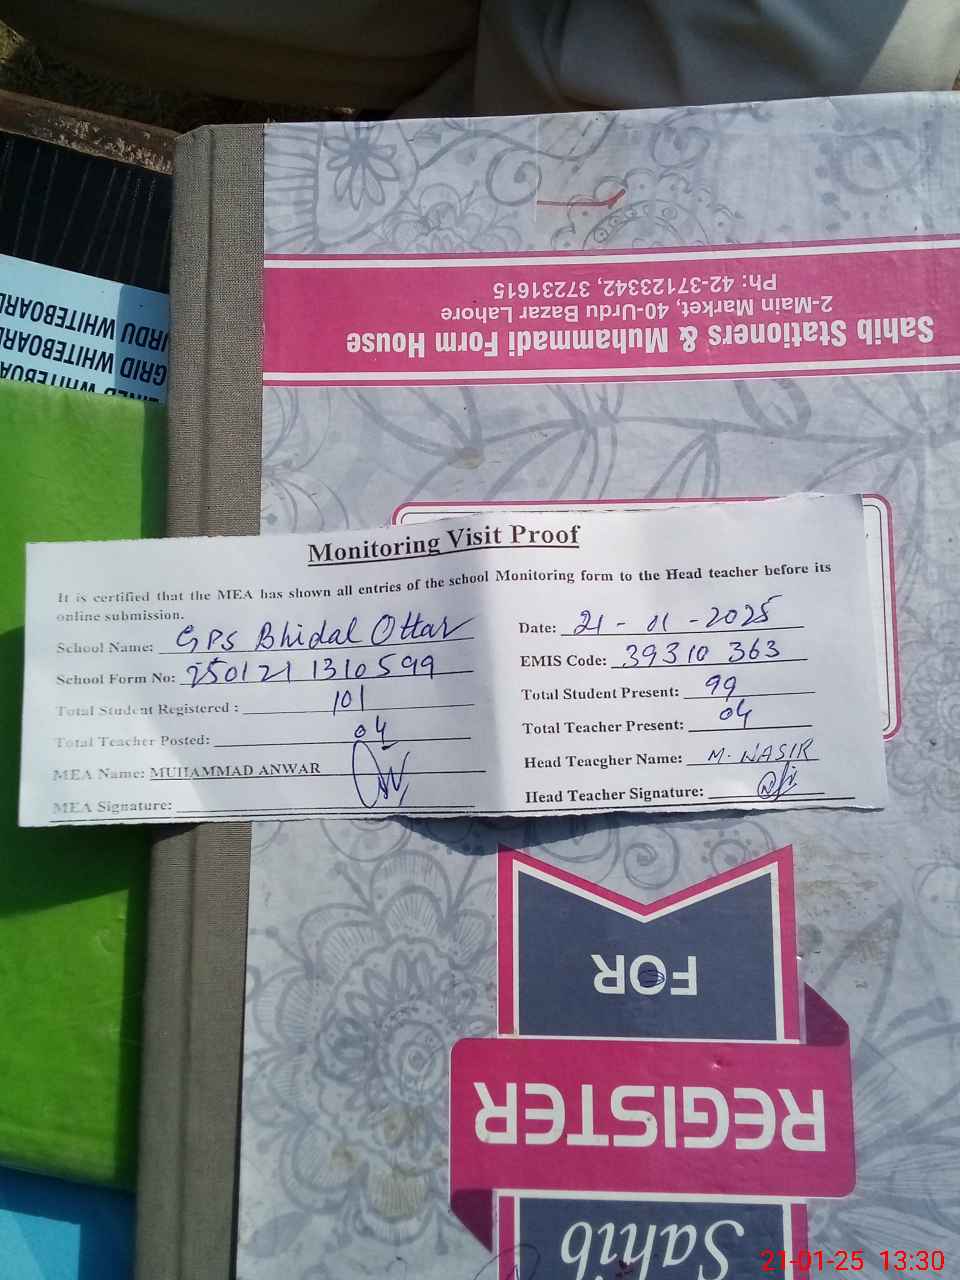 URDU WHITEBOARD
GRID WHITEBOARD
LINED WHITEBOARD
Ph: 42-37123342, 37231615
2-Main Market, 40-Urdu Bazar Lahore
Sahib Stationers & Muhammadi Form House
Monitoring Visit Proof
It is certified that the MEA has shown all entries of the school Monitoring form to the Head teacher before its
online submission.
School Name: GPS Bhidal Ottar
Date: 21-01-2025
School Form No: 250121 1310599
EMIS Code: 39310 363
Total Student Registered : 101
Total Student Present: 99
Total Teacher Posted: 04
Total Teacher Present: 04
MEA Name: MUHAMMAD ANWAR
Head Teacgher Name: M. NASIR
MEA Signature:
Head Teacher Signature:
FOR
REGISTER
Sahib
21-01-25 13:30